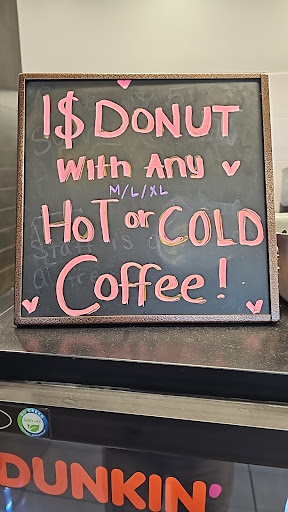 1$ DONUT
With Any
M/L/XL
HoT or COLD
Coffee!
DUNKIN'